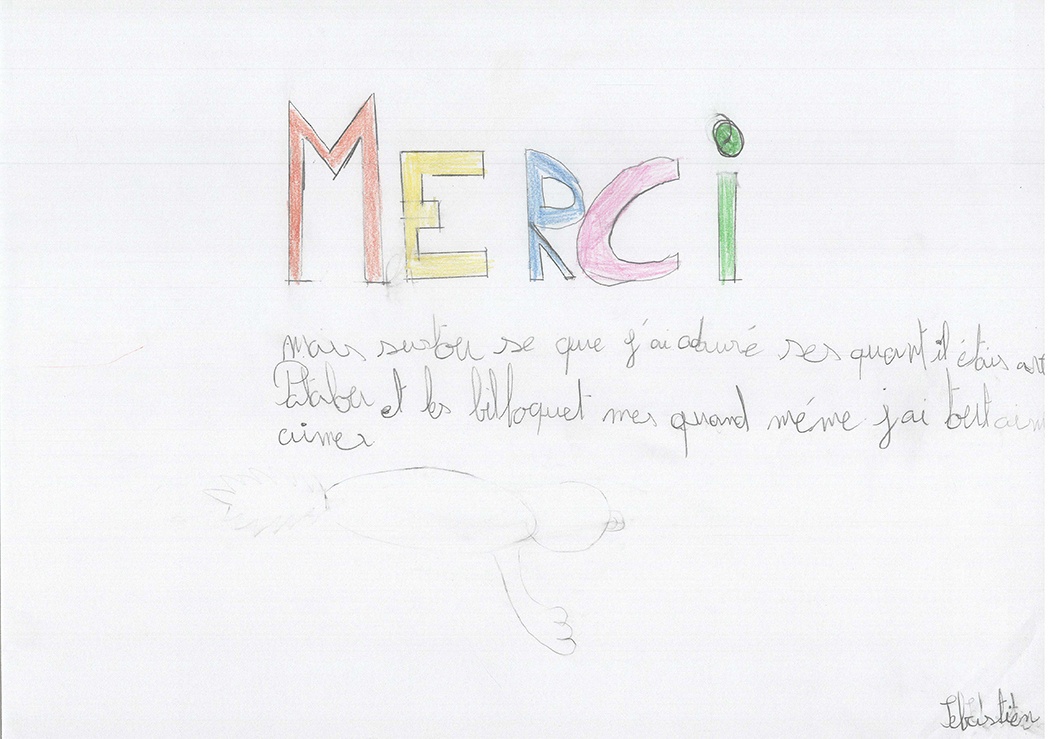 MERCi
mais surtou se que j'ai adoré ses quant il étais
Patabu et les billoquet mes quand méme j'ai tout aim
aimer
Sébastien